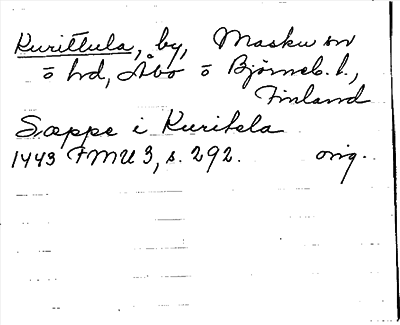 Kurittula, by, Masku sn
o hd, Åbo o Björneb. l.,
Finland
Sæppe i Kuritela
1443 FMU 3, s. 292. orig.